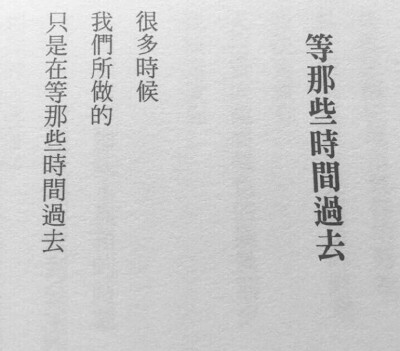 等那些時間過去
很多時候
我們所做的
只是在等那些時間過去